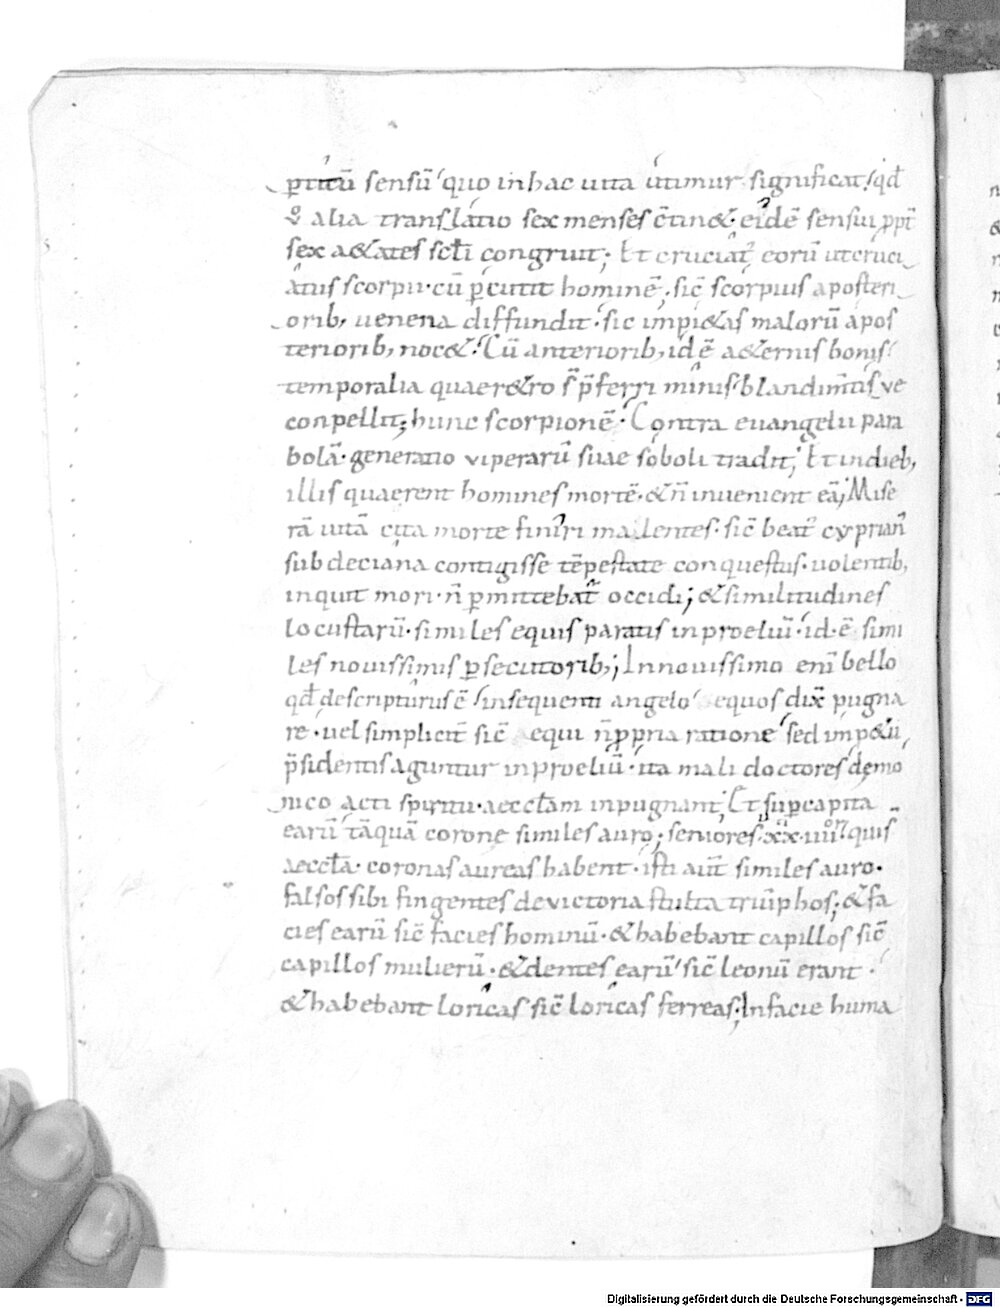 ptitū sensū quo in hac uita utimur significat, qd
& alia translatio sex menses ctin&. eidē sensui ppt
sex a&ates scli congruit; Et cruciat eorū ut cruci
atus scorpii. cū pcutit hominē. sic scorpius a posteri
orib; uenena diffundit. sic impi&as malorū a pos
teriorib; noc&. Cū anteriorib; id ē a&ernis bonis
temporalia quaer& ro pferri minis blandimtis ve
conpellit; hunc scorpionē. Contra euangelii para
bolā. generatio viperarū suae soboli tradit; Et in dieb;
illis quaerent homines mortē. & n̄ inuenient eā; Mise
rā uitā cita morte finiri mallentes. sic beat cyprian
sub deciana contigisse tēpestate conquestus. uolentib;
inquit mori. n̄ pmittebat occidi; & similitudines
locustarū. similes equis paratis in proeliū. id ē simi
les nouissimis psecutorib; In nouissimo enī bello
qd descripturus ē insequenti angelo equos dix pugna
re. uel simplicit sic equi n̄ ppria ratione sed imp&u
psidentis aguntur in proeliū. ita mali doctores demo
nico acti spiritu. aecclam inpugnant; Et sup capita
earū tāquā corone similes auro; seniores xx iiii quis
aeccla. coronas aureas habent. isti aut similes auro.
falsos sibi fingentes de victoria stulta triūphos; & fa
cies earū sic facies hominū. & habebant capillos sic
capillos mulierū. & dentes earū sic leonū erant.
& habebant loricas sic loricas ferreas; In facie huma
Digitalisierung gefördert durch die Deutsche Forschungsgemeinschaft - DFG